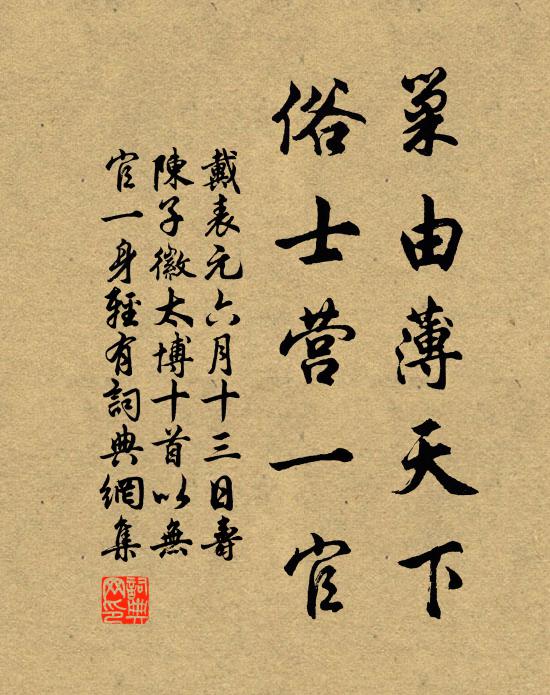 巢由薄天下
俗士营一官
戴表元六月十三日壽
陳子徽太博十首以無
官一身輕有詞典網集
詞典
网印